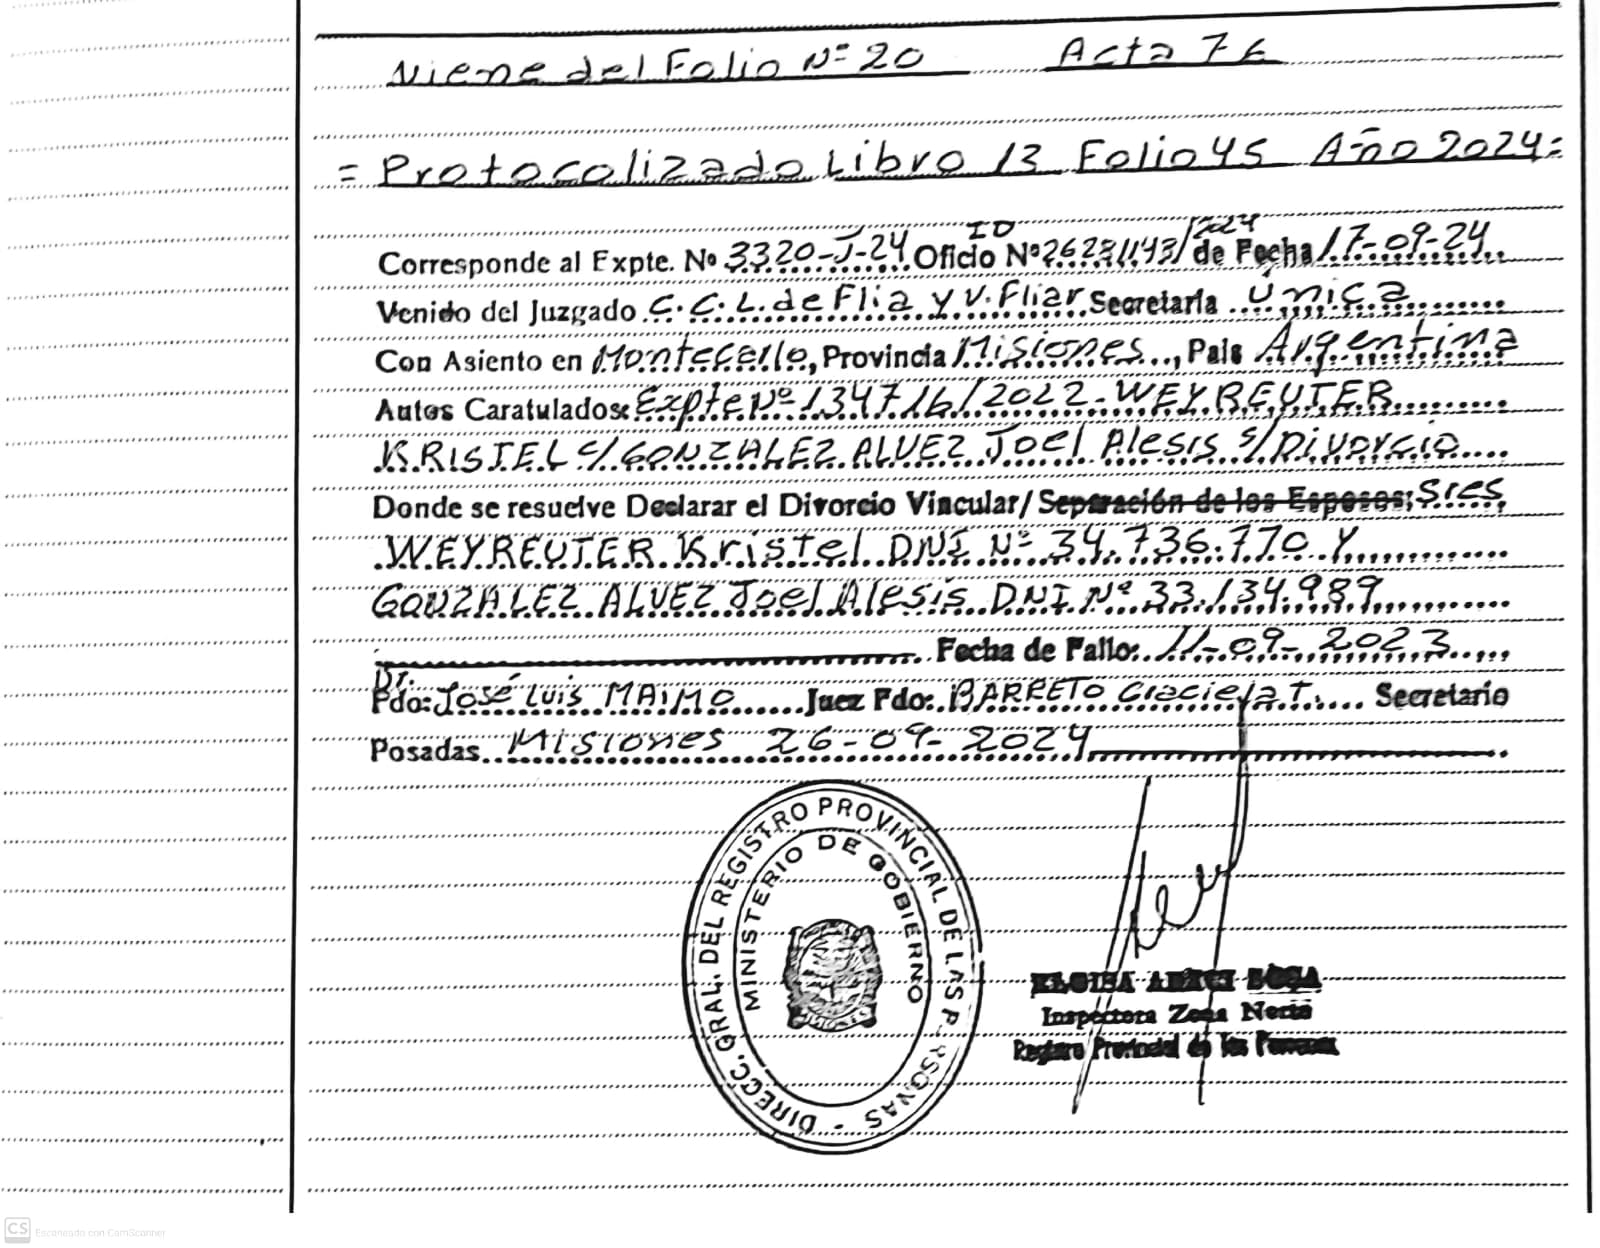 Viene del Folio Nº 20 Acta 76
= Protocolizado Libro 13 Folio 45 Año 2024=
Corresponde al Expte. Nº 3320-J-24 Oficio ID Nº 26231143/2024 de Fecha 17-09-24
Venido del Juzgado C.C.L. de Flia y V. Fliar Secretaría Única
Con Asiento en Montecarlo, Provincia Misiones, País Argentina
Autos Caratulados: Expte Nº 134716/2022-WEYREUTER
KRISTEL c/ GONZALEZ ALVEZ Joel Alesis s/Divorcio
Donde se resuelve Declarar el Divorcio Vincular/ Separación de los Esposos; Sres
WEYREUTER Kristel DNI Nº 34.736.770 Y
GONZALEZ ALVEZ Joel Alesis DNI Nº 33.134.989
Fecha de Fallo: 11-09-2023
Fdo: Dr. José Luis MAIMO Juez Fdo: BARRETO Graciela T. Secretario
Posadas Misiones 26-09-2024
DIRECC. GRAL. DEL REGISTRO PROVINCIAL DE LAS PERSONAS -
MINISTERIO DE GOBIERNO
MISIONES
ELOISA SOSA
Inspectora Zona Norte
Registro Provincial de las Personas
CS Escaneado con CamScanner